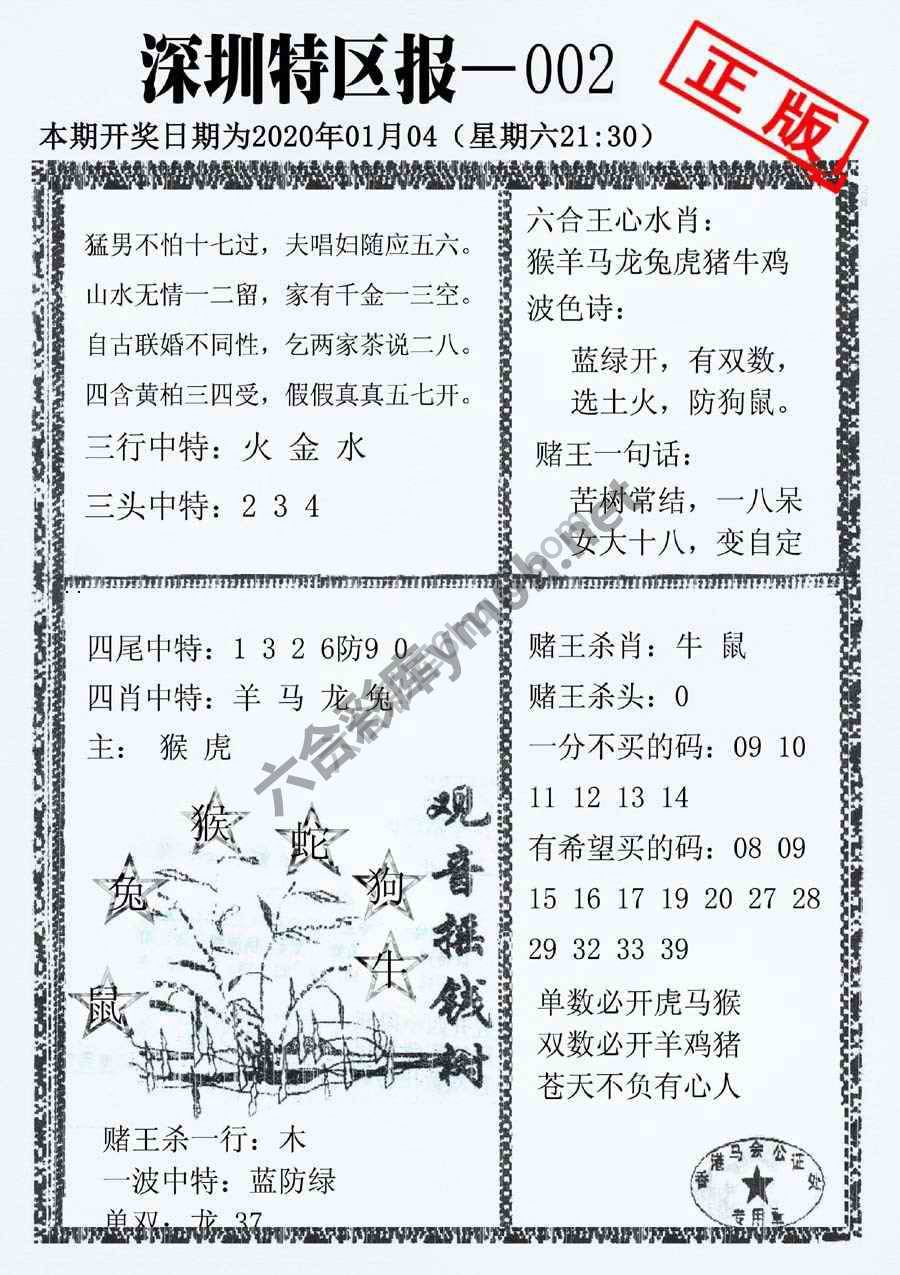 深圳特区报—002
正版
本期开奖日期为2020年01月04（星期六21:30）
猛男不怕十七过，夫唱妇随应五六。
山水无情一二留，家有千金一三空。
自古联婚不同性，乞两家茶说二八。
四含黄柏三四受，假假真真五七开。
三行中特：火 金 水
三头中特：2 3 4
六合王心水肖：
猴羊马龙兔虎猪牛鸡
波色诗：
蓝绿开，有双数，
选土火，防狗鼠。
赌王一句话：
苦树常结，一八呆
女大十八，变自定
四尾中特：1 3 2 6防9 0
四肖中特：羊 马 龙 兔
主： 猴 虎
猴
蛇
兔
狗
牛
鼠
观音摇钱树
赌王杀一行：木
一波中特：蓝防绿
单双：龙 37
赌王杀肖：牛 鼠
赌王杀头：0
一分不买的码：09 10
11 12 13 14
有希望买的码：08 09
15 16 17 19 20 27 28
29 32 33 39
单数必开虎马猴
双数必开羊鸡猪
苍天不负有心人
香港马会公证处
专用章
六合彩库ymbh.net